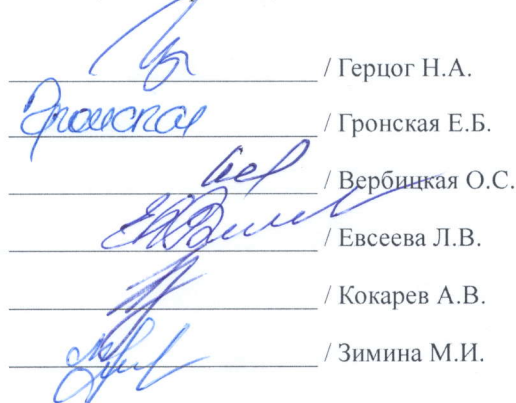 / Герцог Н.А.
Гронская / Гронская Е.Б.
/ Вербицкая О.С.
/ Евсеева Л.В.
/ Кокарев А.В.
/ Зимина М.И.